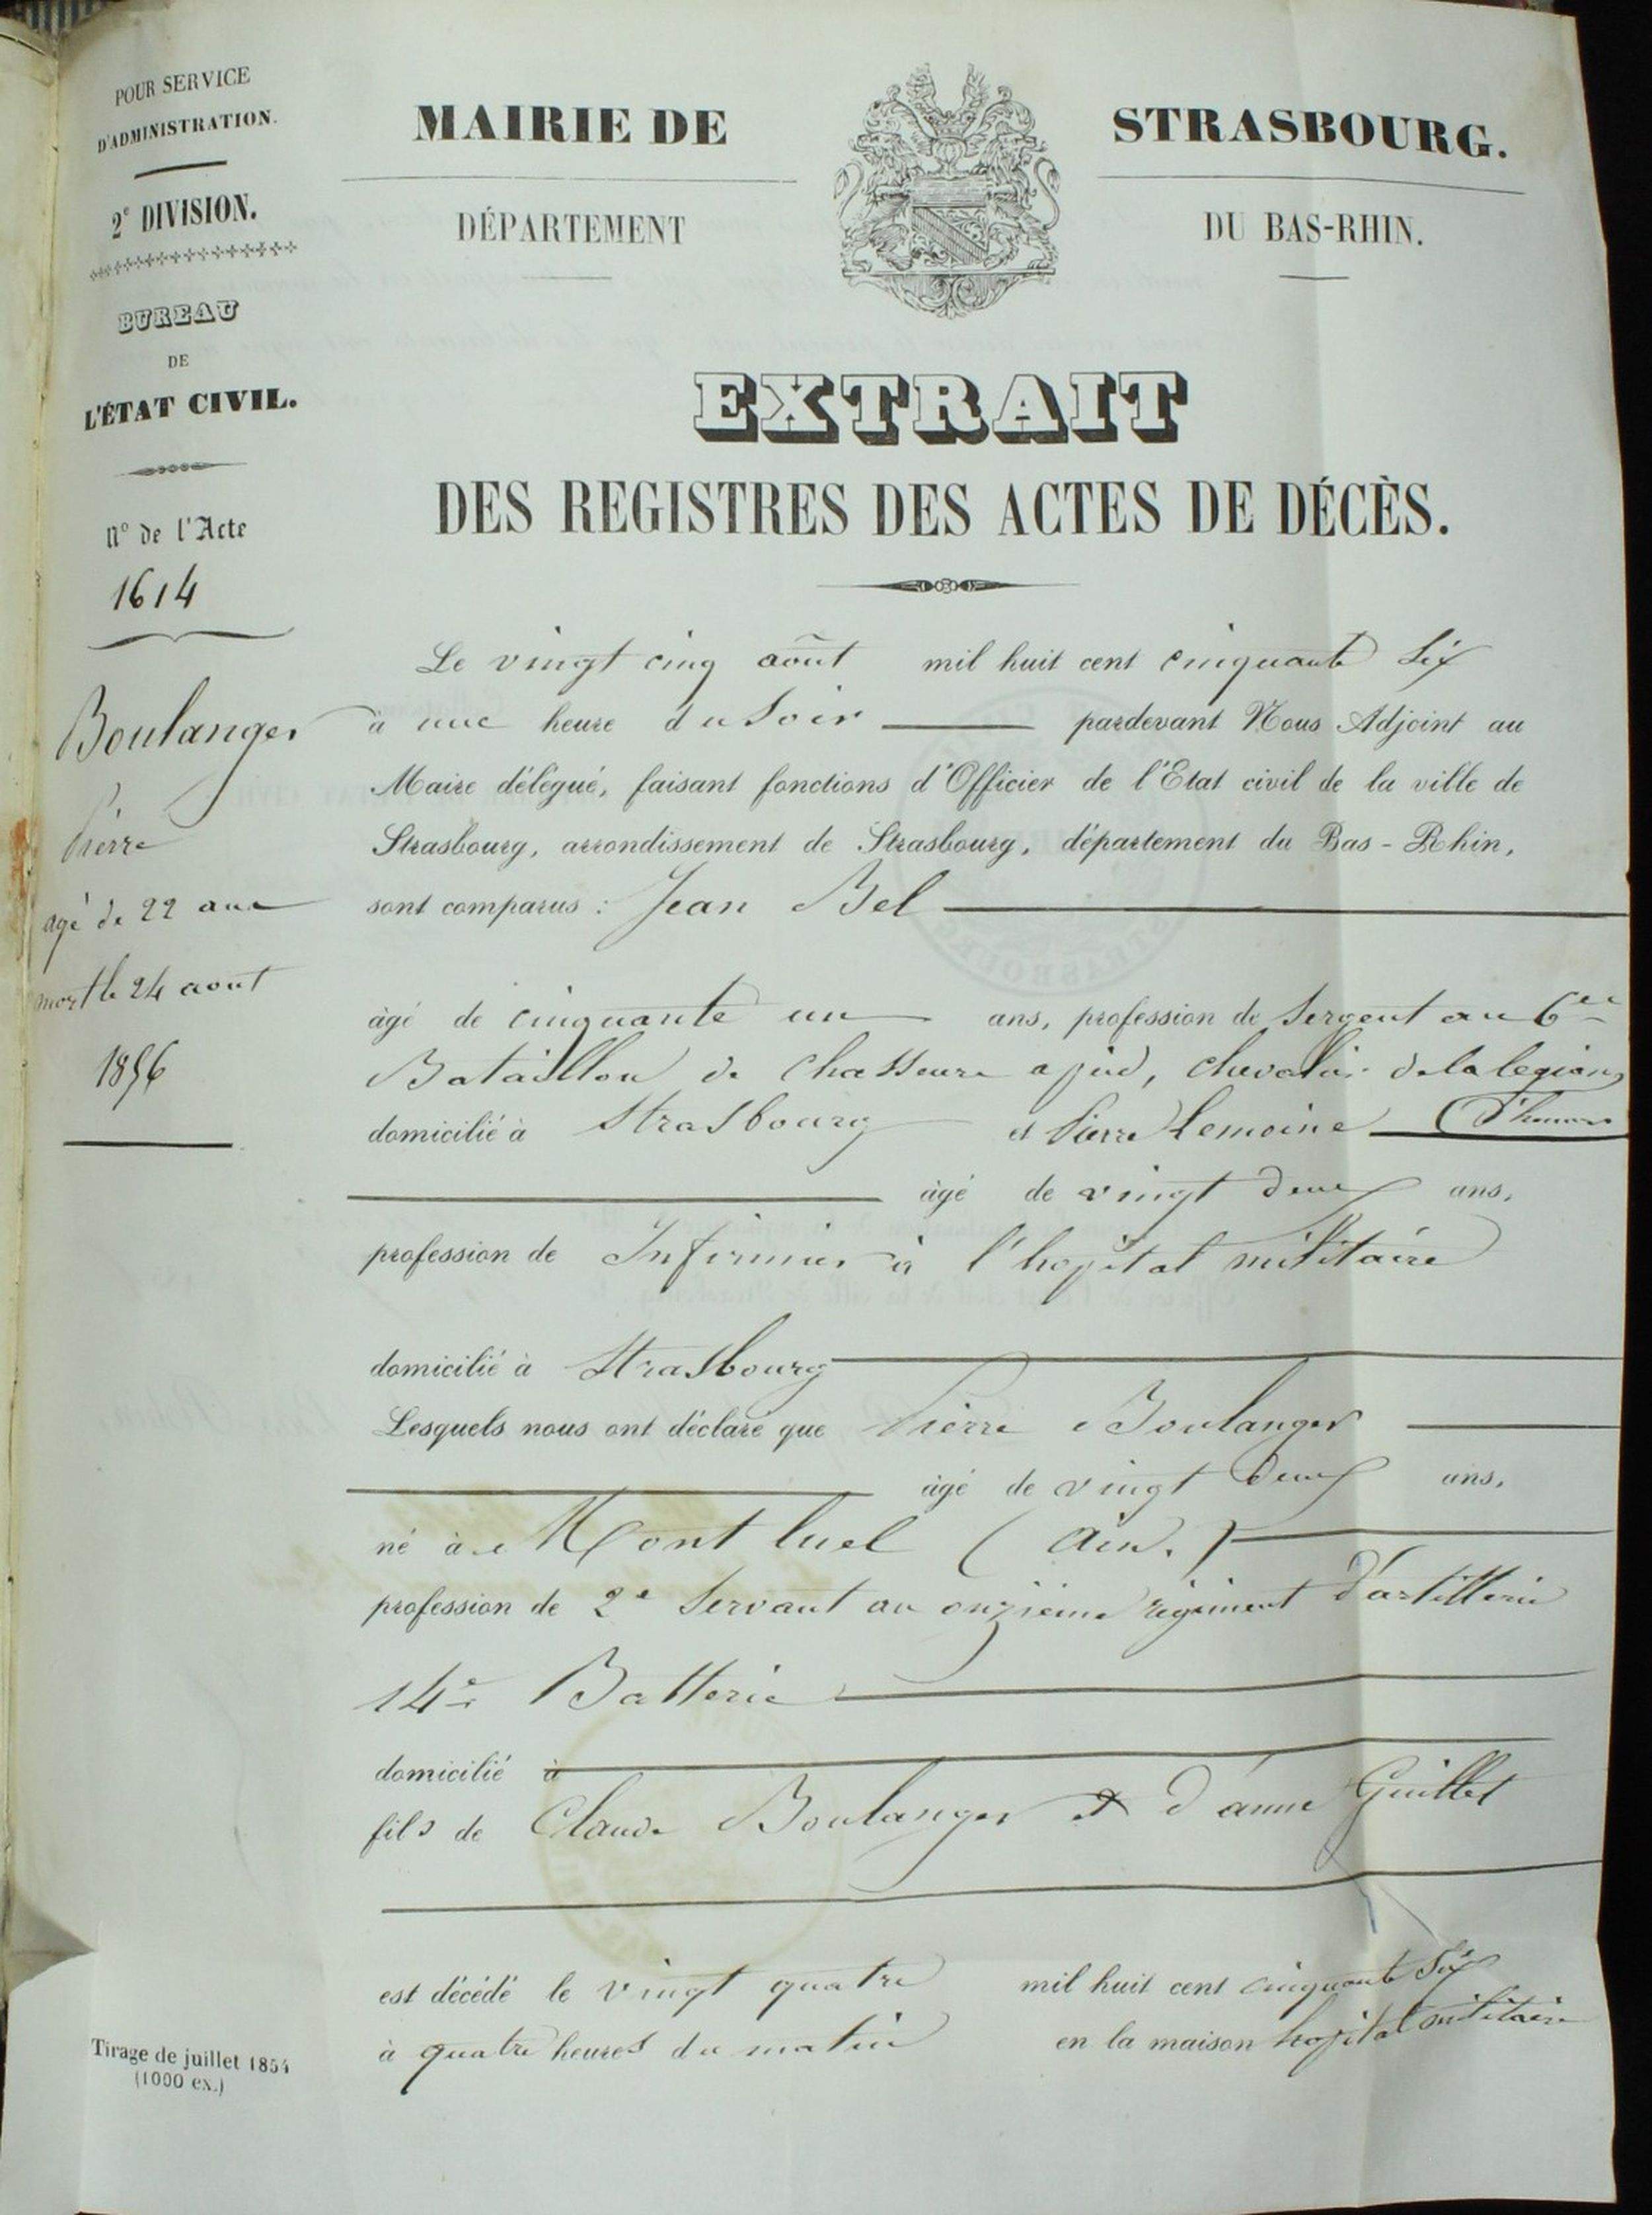 POUR SERVICE
D'ADMINISTRATION.
2e DIVISION.
BUREAU
DE
L'ÉTAT CIVIL.
N° de l'Acte
1614
Boulanger
Pierre
agé de 22 ans
mort le 24 aout
1856
Tirage de juillet 1854
(1000 ex.)
MAIRIE DE STRASBOURG.
DÉPARTEMENT DU BAS-RHIN.
EXTRAIT
DES REGISTRES DES ACTES DE DÉCÈS.
Le vingt cinq août mil huit cent cinquante Six
à une heure du Soir pardevant Nous Adjoint au
Maire délégué, faisant fonctions d'Officier de l'Etat civil de la ville de
Strasbourg, arrondissement de Strasbourg, département du Bas-Rhin,
sont comparus : Jean Bel
âgé de cinquante un ans, profession de Sergent au 6me
Bataillon de Chasseurs a pied, chevalier de la legion
d'honneur
domicilié à Strasbourg et Pierre Lemoine
âgé de vingt deux ans,
profession de Infirmier à l'hopital militaire
domicilié à Strasbourg
Lesquels nous ont déclaré que Pierre Boulanger
âgé de vingt deux ans,
né à Montluel (Ain.)
profession de 2e Servant au onzième régiment d'artillerie
14e Batterie
domicilié à
fils de Claude Boulanger & d'anne Guillet
est décédé le vingt quatre mil huit cent cinquante Six
à quatre heures du matin en la maison hopital militaire